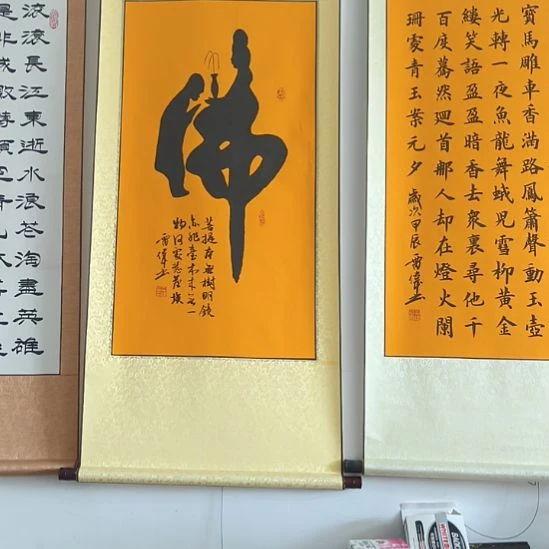 寶馬雕車香滿路鳳簫聲動玉壺
光轉一夜魚龍舞蛾兒雪柳黃金
縷笑語盈盈暗香去衆裏尋他千
百度驀然迴首那人却在燈火闌
珊處青玉案元夕 歲次甲辰雷偉书
佛
菩提本無樹明鏡
亦非臺本來無一
物何處惹塵埃
雷偉书
滾滾長江東逝水浪花淘盡英雄
是非成敗轉頭空